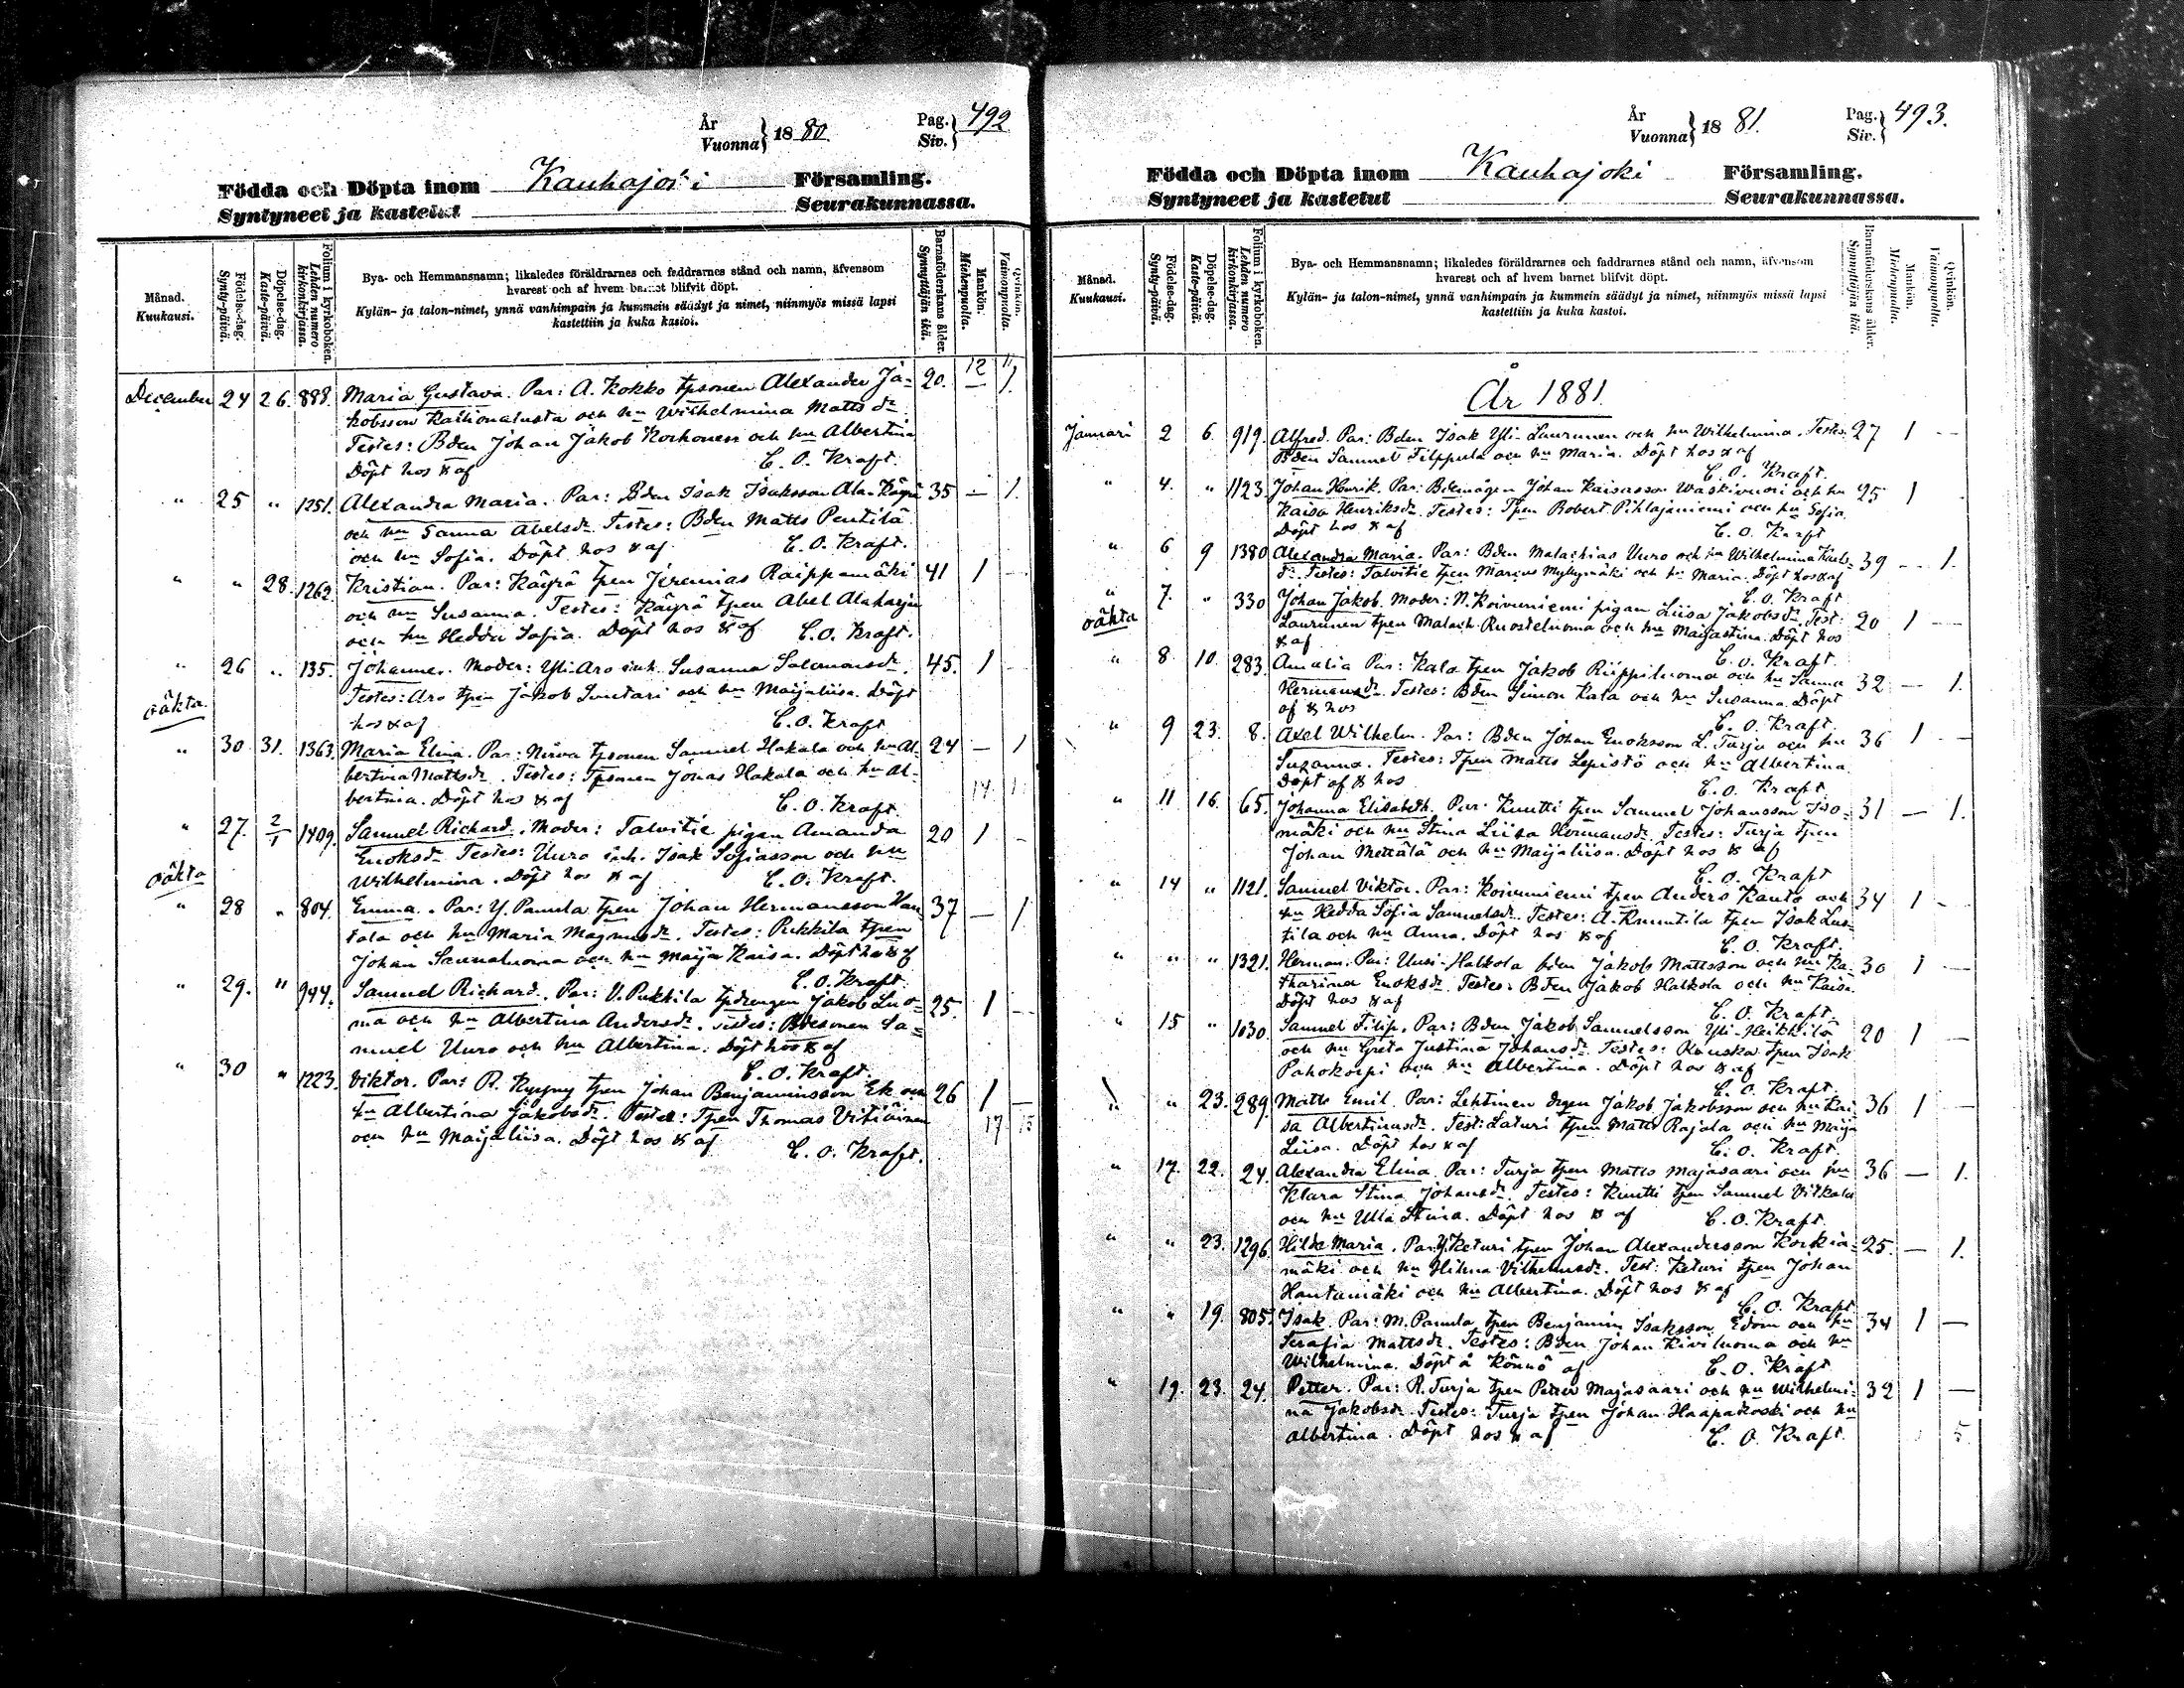 År
Vuonna } 18 80. Pag. Siv. } 492
Födda och Döpta inom Kauhajoki Församling.
Syntyneet ja kastetut Seurakunnassa.
Månad. Kuukausi.
Födelse-dag. Synty-päivä.
Döpelse-dag. Kaste-päivä.
Folium i kyrkoboken. Lehden numero kirkonkirjassa.
Bya- och Hemmansnamn; likaledes föräldrarnes och faddrarnes stånd och namn, äfvensom
hvarest och af hvem barnet blifvit döpt.
Kylän- ja talon-nimet, ynnä vanhimpain ja kummein säädyt ja nimet, niinmyös missä lapsi
kastettiin ja kuka kastoi.
Barnaföderskans ålder. Synnyttäjän ikä.
Mankön. Miehenpuolta.
Qvinkön. Vaimonpuolta.
12 11
December 24 26. 888. Maria Gustava. Par: A. Kokko tpsonen Alexander Ja- 20. — 1.
kobsson och hu Wilhelmina Matts dr
Testes: Bden Johan Jakob Korhonen och hu Albertina
Döpt hos & af C. O. Kraft.
" 25 " 1251. Alexandra Maria. Par: Bden Isak Isaksson Ala-Käyrä 35 — 1.
och hu Sanna Abelsdr. Testes: Bden Matts Pentilä
och hu Sofia. Döpt hos & af C. O. Kraft.
" " 28. 1262. Kristian. Par: Käyrä tpen Jeremias Raippamäki 41 1 —
och hu Susanna. Testes: Käyrä tpen Abel Alaharju
och hu Hedda Sofia. Döpt hos & af C. O. Kraft.
" 26 " 135. Johannes. Moder: Yli-Aro inh. Susanna Salomonsdr 45. 1 —
oäkta. Testes: Aro tpen Jakob Suutari och hu Maijaliisa. Döpt
hos & af C. O. Kraft
" 30 31. 1363. Maria Elina. Par: Nirva tpsonen Samuel Hakala och hu Al- 24 — 1
bertina Mattsdr. Testes: Tpsonen Jonas Hakala och hu Al-
bertina. Döpt hos & af C. O. Kraft. 14
" 27. 2/1 1409. Samuel Richard. Moder: Talvitie pigan Amanda 20 1 —
oäkta Enoksdr Testes: Uuro inh. Isak Sofiasson och hu
Wilhelmina. Döpt hos & af C. O. Kraft.
" 28 " 804. Emma. Par: Y. Panula tpen Johan Hermansson Han- 37 — 1
tala och hu Maria Magnusdr. Testes: Pukkila tpen
Johan Sannaluoma och hu Maija Kaisa. Döpt hos & af
C. O. Kraft.
" 29. " 944. Samuel Richard. Par: V. Pukkila tpdrengen Jakob Luo- 25. 1 —
ma och hu Albertina Andersdr. Testes: Bdesonen Sa-
muel Uuro och hu Albertina. Döpt hos & af
C. O. Kraft.
" 30 " 1223. Viktor. Par: R. Kyyny tpen Johan Benjaminsson Ek och 26 1 —
hu Albertina Jakobsdr. Testes: Tpen Thomas Vitiäinen 17 15
och hu Maijaliisa. Döpt hos & af C. O. Kraft.
År
Vuonna } 18 81. Pag. Siv. } 493.
Födda och Döpta inom Kauhajoki Församling.
Syntyneet ja kastetut Seurakunnassa.
Månad. Kuukausi.
Födelse-dag. Synty-päivä.
Döpelse-dag. Kaste-päivä.
Folium i kyrkoboken. Lehden numero kirkonkirjassa.
Bya- och Hemmansnamn; likaledes föräldrarnes och faddrarnes stånd och namn, äfvensom
hvarest och af hvem barnet blifvit döpt.
Kylän- ja talon-nimet, ynnä vanhimpain ja kummein säädyt ja nimet, niinmyös missä lapsi
kastettiin ja kuka kastoi.
Barnaföderskans ålder. Synnyttäjän ikä.
Mankön. Miehenpuolta.
Qvinkön. Vaimonpuolta.
År 1881.
Januari 2 6. 919. Alfred. Par: Bden Isak Yli-Laurunen och hu Wilhelmina. Testes: 27 1 —
Bden Samuel Filppula och hu Maria. Döpt hos & af
C. O. Kraft.
" 4. " 1123. Johan Henrik. Par: Bdemågen Johan Kaisasson Waskivuori och hu 25 1
Kaisa Henriksdr. Testes: Tpen Robert Pihlajaniemi och hu Sofia.
Döpt hos & af C. O. Kraft
" 6 9 1380 Alexandra Maria. Par: Bden Malachias Uuro och hu Wilhelmina Karls- 39 — 1.
dr. Testes: Talvitie tpen Marius Myllymäki och hu Maria. Döpt hos & af
C. O. Kraft
" 7. " 330 Johan Jakob. Moder: N. Koivuniemi pigan Liisa Jakobsdr. Test: 20 1 —
oäkta Laurunen tpen Malach. Ruosteluoma och hu Maijastina. Döpt hos
& af C. O. Kraft.
" 8. 10. 283. Amalia Par: Kala tpen Jakob Riippiluoma och hu Sanna 32 — 1.
Hermansdr. Testes: Bden Simon Kala och hu Susanna. Döpt
af & hos C. O. Kraft.
" 9 23. 8. Axel Wilhelm. Par: Bden Johan Enoksson L. Turja och hu 36 1 —
Susanna. Testes: Tpen Matts Lepistö och hu Albertina.
Döpt af & hos C. O. Kraft.
" 11. 16. 65. Johanna Elisabeth. Par: Knutti tpen Samuel Johansson Iso- 31 — 1.
mäki och hu Stina Liisa Hermansdr. Testes: Turja tpen
Johan Mettälä och hu Maijaliisa. Döpt hos & af
C. O. Kraft
" 14 " 1121. Samuel Viktor. Par: Koivuniemi tpen Anders Kanto och 34 1 —
hu Hedda Sofia Samuelsdr. Testes: A-Knuutila tpen Isak Lus-
tila och hu Anna. Döpt hos & af C. O. Kraft.
" " " 1321. Herman. Par: Uusi-Halkola bden Jakob Mattsson och hu Ka- 30 1 —
tharina Enoksdr. Testes: Bden Jakob Halkola och hu Kaisa
Döpt hos & af C. O. Kraft.
" 15 " 1030. Samuel Filip. Par: Bden Jakob Samuelsson Yli-Heikkilä 20 1 —
och hu Greta Justina Johansdr. Testes: Kauska tpen Isak
Pahokorpi och hu Albertina. Döpt hos & af
C. O. Kraft.
" " 23. 289. Matts Emil. Par: Lehtinen drgen Jakob Jakobsson och hu Kai- 36 1 —
sa Albertinasdr. Test: Laturi tpen Matts Rajala och hu Maija
Liisa. Döpt hos & af C. O. Kraft.
" 17. 22. 24. Alexandra Elina. Par: Turja tpen Matts Majasaari och hu 36 — 1.
Klara Stina Johansdr. Testes: Knutti tpen Samuel Vilkala
och hu Ulla Stina. Döpt hos & af C. O. Kraft.
" " 23. 1296. Hilda Maria. Par: Y. Keturi tpen Johan Alexandersson Korkia- 25. — 1.
mäki och hu Hilma Vilhelmsdr. Test: Keturi tpen Johan
Hautamäki och hu Albertina. Döpt hos & af
C. O. Kraft.
" " 19. 805. Isak. Par: M. Panula tpen Benjamin Isaksson Edom och hu 34 1 —
Serafia Mattsdr. Testes: Bden Johan Kiviluoma och hu
Wilhelmina. Döpt å Könnö af C. O. Kraft
" 19. 23. 24. Petter. Par: R. Turja tpen Petter Majasaari och hu Wilhelmi- 32 1 —
na Jakobsdr. Testes: Turja tpen Johan Haapakoski och hu
Albertina. Döpt hos & af C. O. Kraft. 5